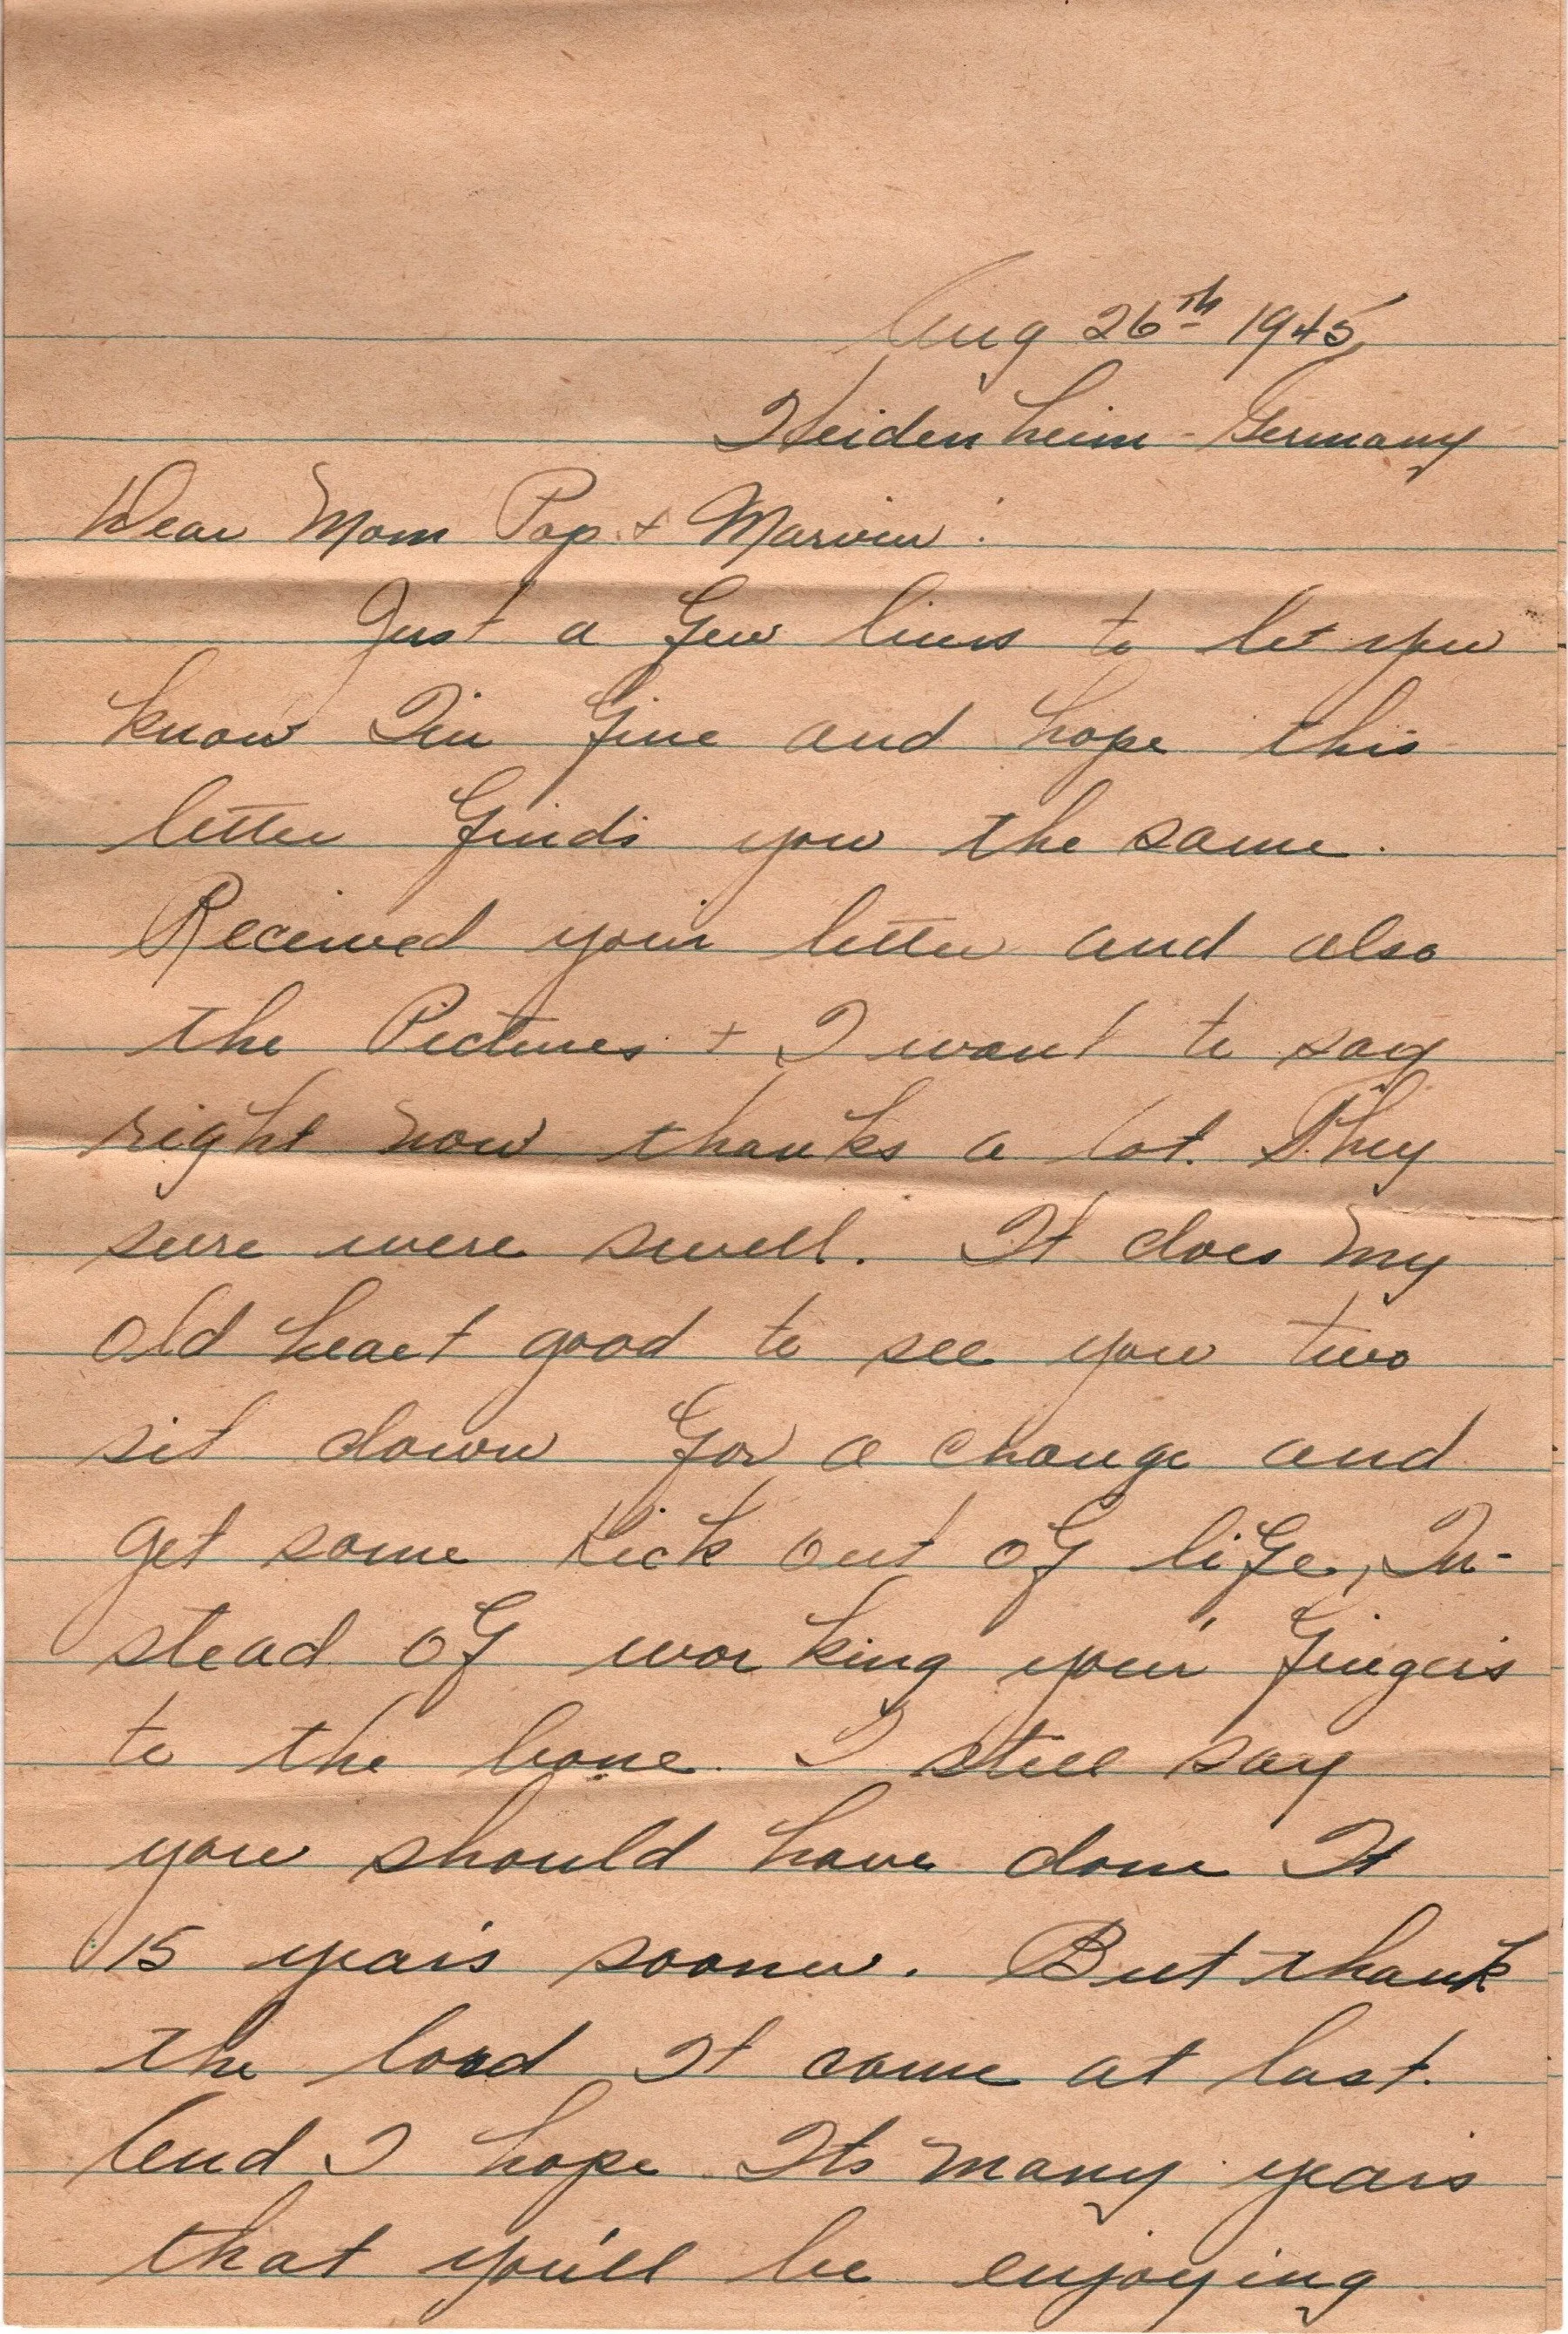 Aug 26th 1945
Heidenheim - Germany
Dear Mom Pop + Marvin:
Just a few lines to let you
know I'm fine and hope this
letter finds you the same.
Received your letter and also
the Pictures + I want to say
right now thanks a lot. They
sure were swell. It does my
old heart good to see you two
sit down for a change and
get some kick out of life, In-
stead of working your fingers
to the bone. I still say
you should have done It
15 years sooner. But thank
the lord It came at last.
And I hope Its many years
that you'll be enjoying